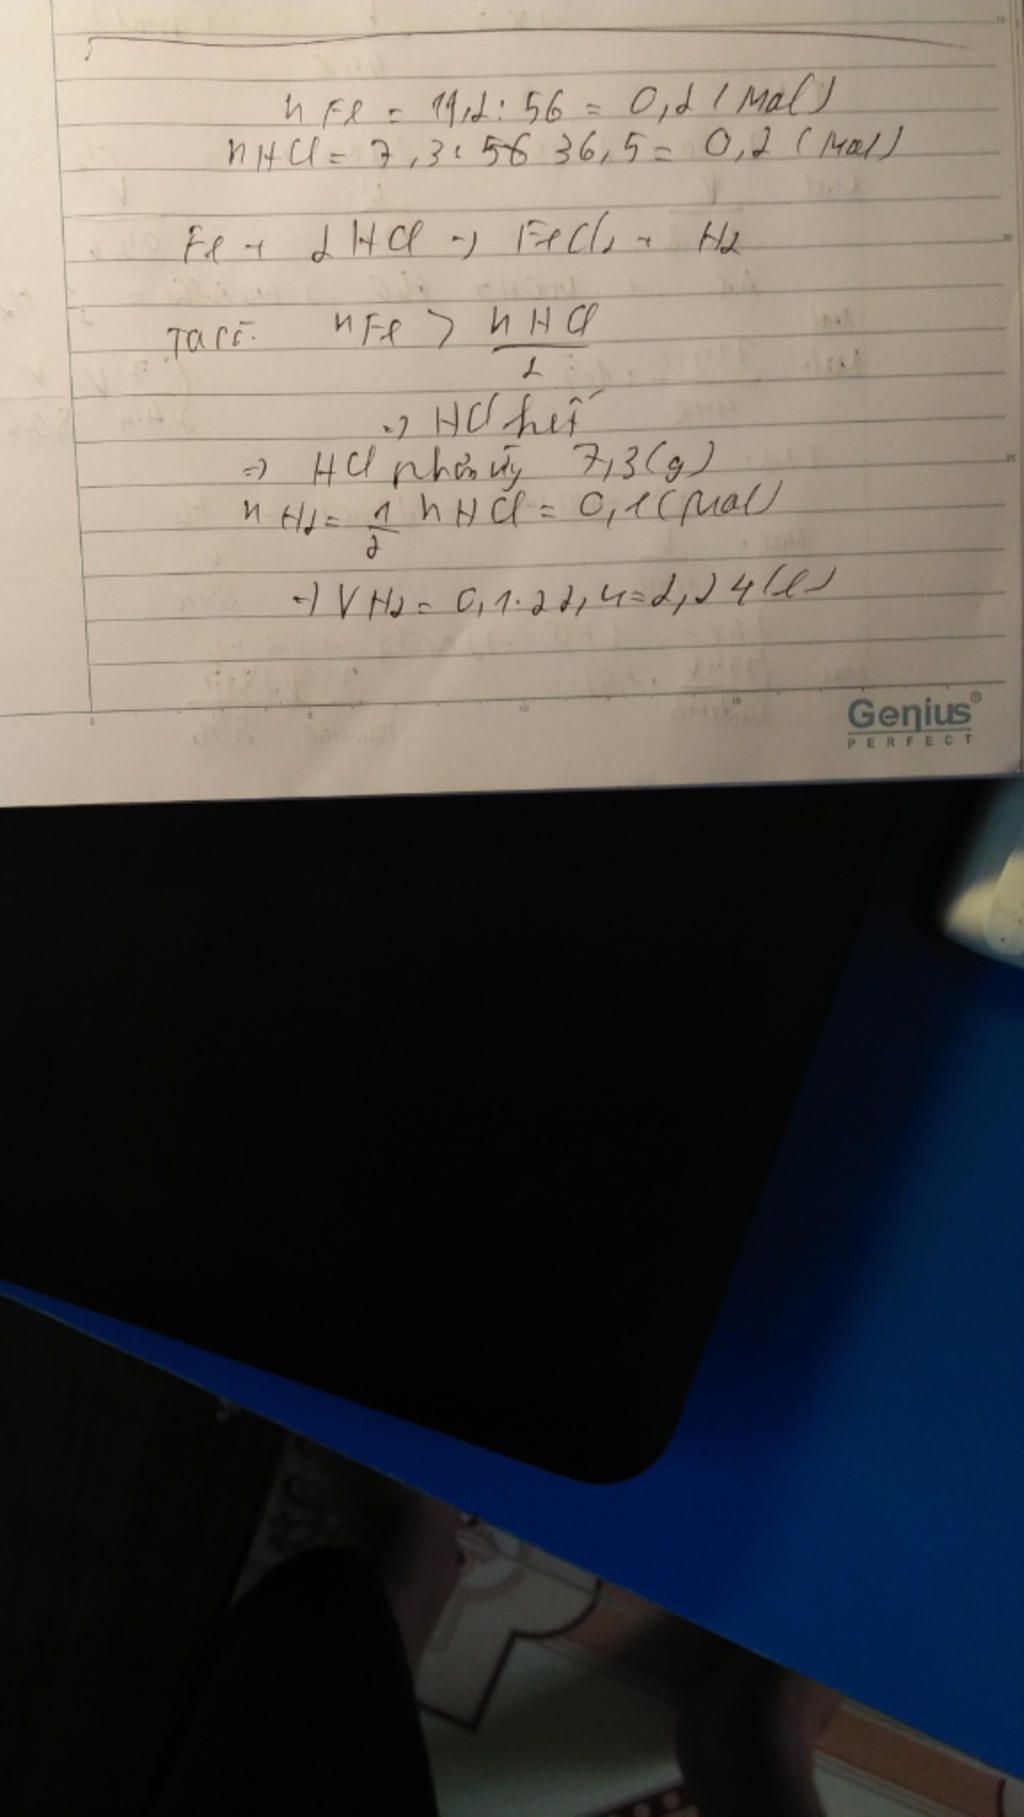 nFe = 11,2 : 56 = 0,2 (mol)
nHCl = 7,3 : 56 36,5 = 0,2 (mol)
Fe + 2HCl → FeCl2 + H2
Ta có: nFe > nHCl/2
=> HCl hết
=> HCl 7,3 (g)
nH2 = 1/2 nHCl = 0,1 (mol)
=> VH2 = 0,1.22,4 = 2,24 (l)
Genius®
PERFECT